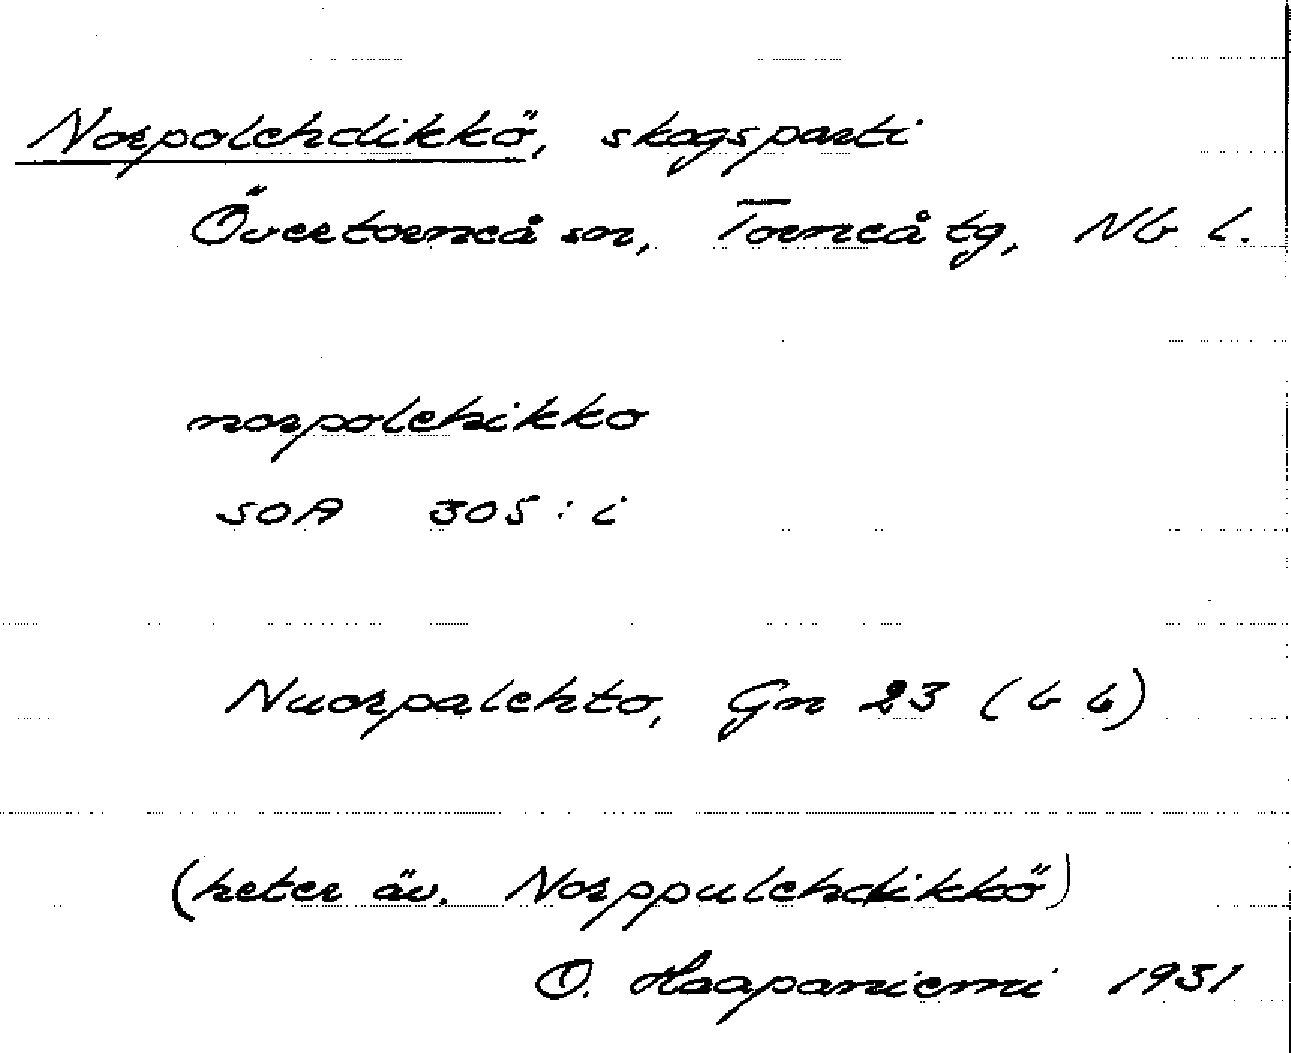 Norpolehdikkö, skogsparti
Övertorneå sn, Torneå tg, Nb l.
norpolehikko
SOA 305: i
Nuorpalehto, Gn 23 (b 6)
(heter äv. Norppulehdikkö)
O. Haapaniemi 1931